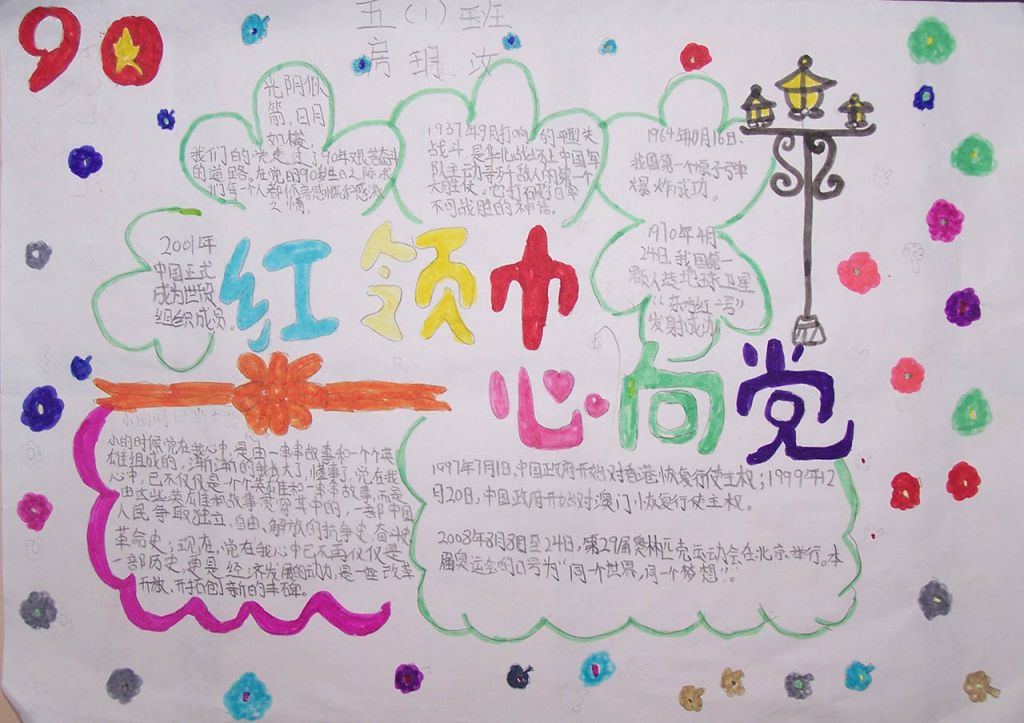 90
五（1）班
房玥汝
光阴似
箭，日月
如梭，
我们的党走过了90年艰苦奋斗
的道路。在党的90岁生日之际，我
们每一个人都怀着感恩和感激
之情。
1937年9月打响的平型关
战斗，是华北战场上中国军
队主动寻歼敌人的第一个
大胜仗。它打破了日军
不可战胜的神话。
1964年10月16日:
我国第一个原子弹
爆炸成功。
1970年4月
24日，我国第一
颗人造地球卫星
“东方红一号”
发射成功
2001年
中国正式
成为世贸
组织成员。
红领巾
心向党
小的时候党在我心中，是由一串串故事和一个个英
雄组成的，渐渐的我长大了，懂事了，党在我
心中，已不仅仅是一个个英雄和一串串故事，而是
由这些英雄和故事贯穿其中的，一部中国
人民争取独立、自由、解放的抗争史、奋斗史
革命史；现在，党在我心中已不再仅仅是
一部历史，更是经济发展的动力，是一座改革
开放，开拓创新的丰碑。
1997年7月1日，中国政府开始对香港恢复行使主权；1999年12
月20日，中国政府开始对澳门恢复行使主权。
2008年8月8日至24日，第29届奥林匹克运动会在北京举行。本
届奥运会的口号为“同一个世界，同一个梦想”。